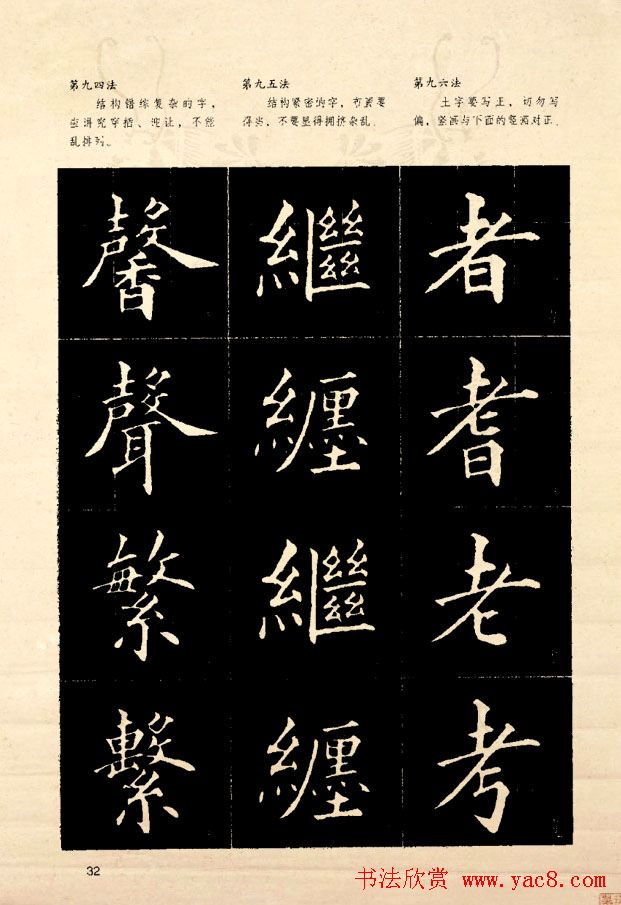 第九四法
结构错综复杂的字，
应讲究穿插、避让，不能
乱排列。
馨
聲
繁
繫
第九五法
结构紧密的字，布置要
得当，不要显得拥挤杂乱。
繼
纒
繼
纒
第九六法
土字要写正，切勿写
偏，竖画与下面的竖画对正。
者
耆
老
考
32
书法欣赏 www.yac8.com